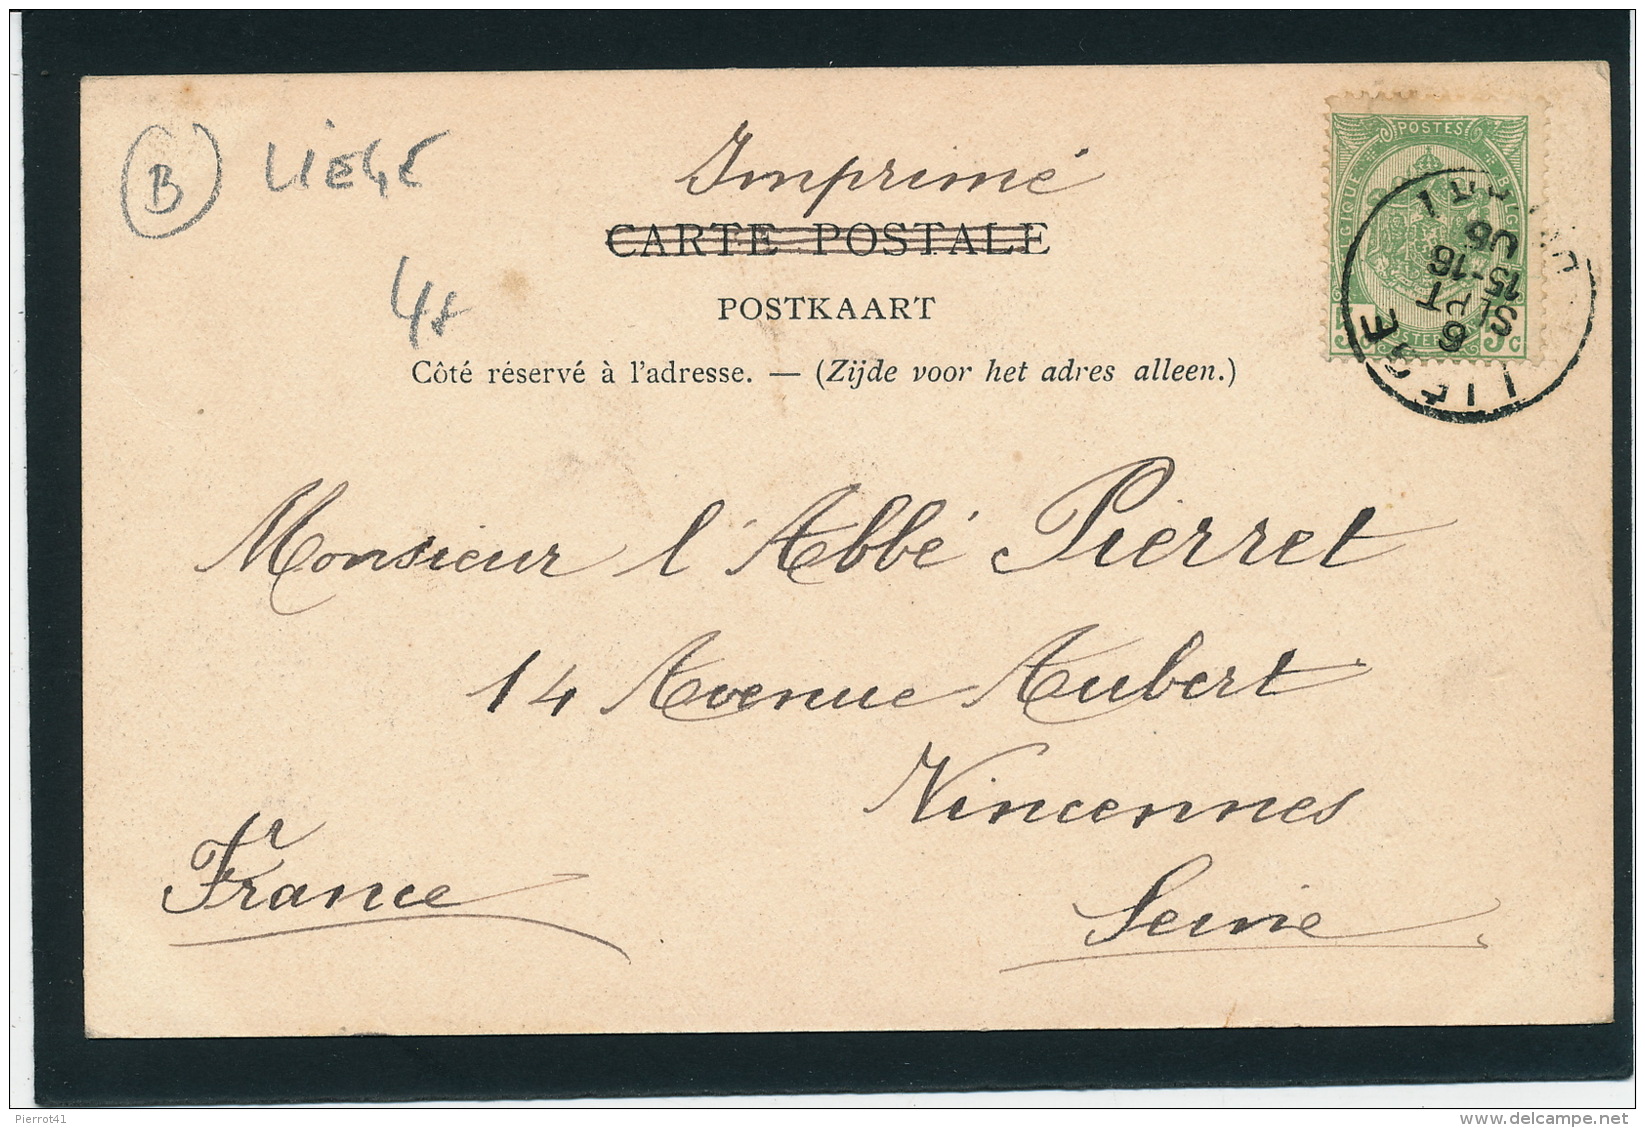 B LIEGE
Imprimé
CARTE POSTALE
4x
POSTKAART
Côté réservé à l'adresse. — (Zijde voor het adres alleen.)
POSTES
BELGIQUE
5 c
LIEGE
6
SEPT
15-16
06
Monsieur l'Abbé Pierret
14 Avenue Aubert
Vincennes
Seine
France
Pierrot41
www.delcampe.net